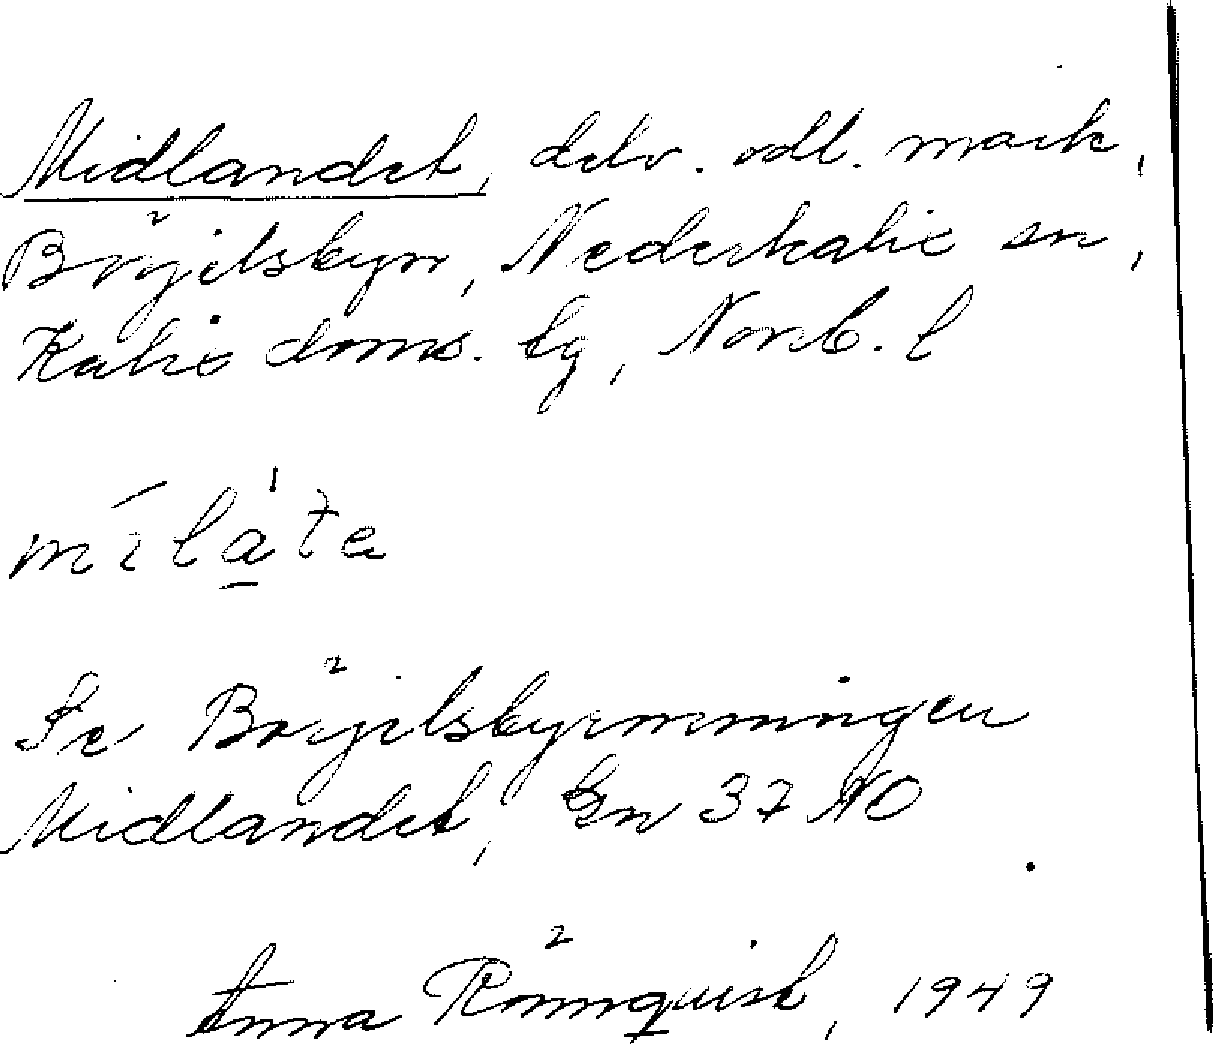 Midlandet, delv. odl. mark,
Börjelsbyn, Nederkalix sn,
Kalix doms. lg, Norrb. l
Se Börjelsbyrenningen
Midlandet, Gn 37 NO
Anna Rönnquist, 1949